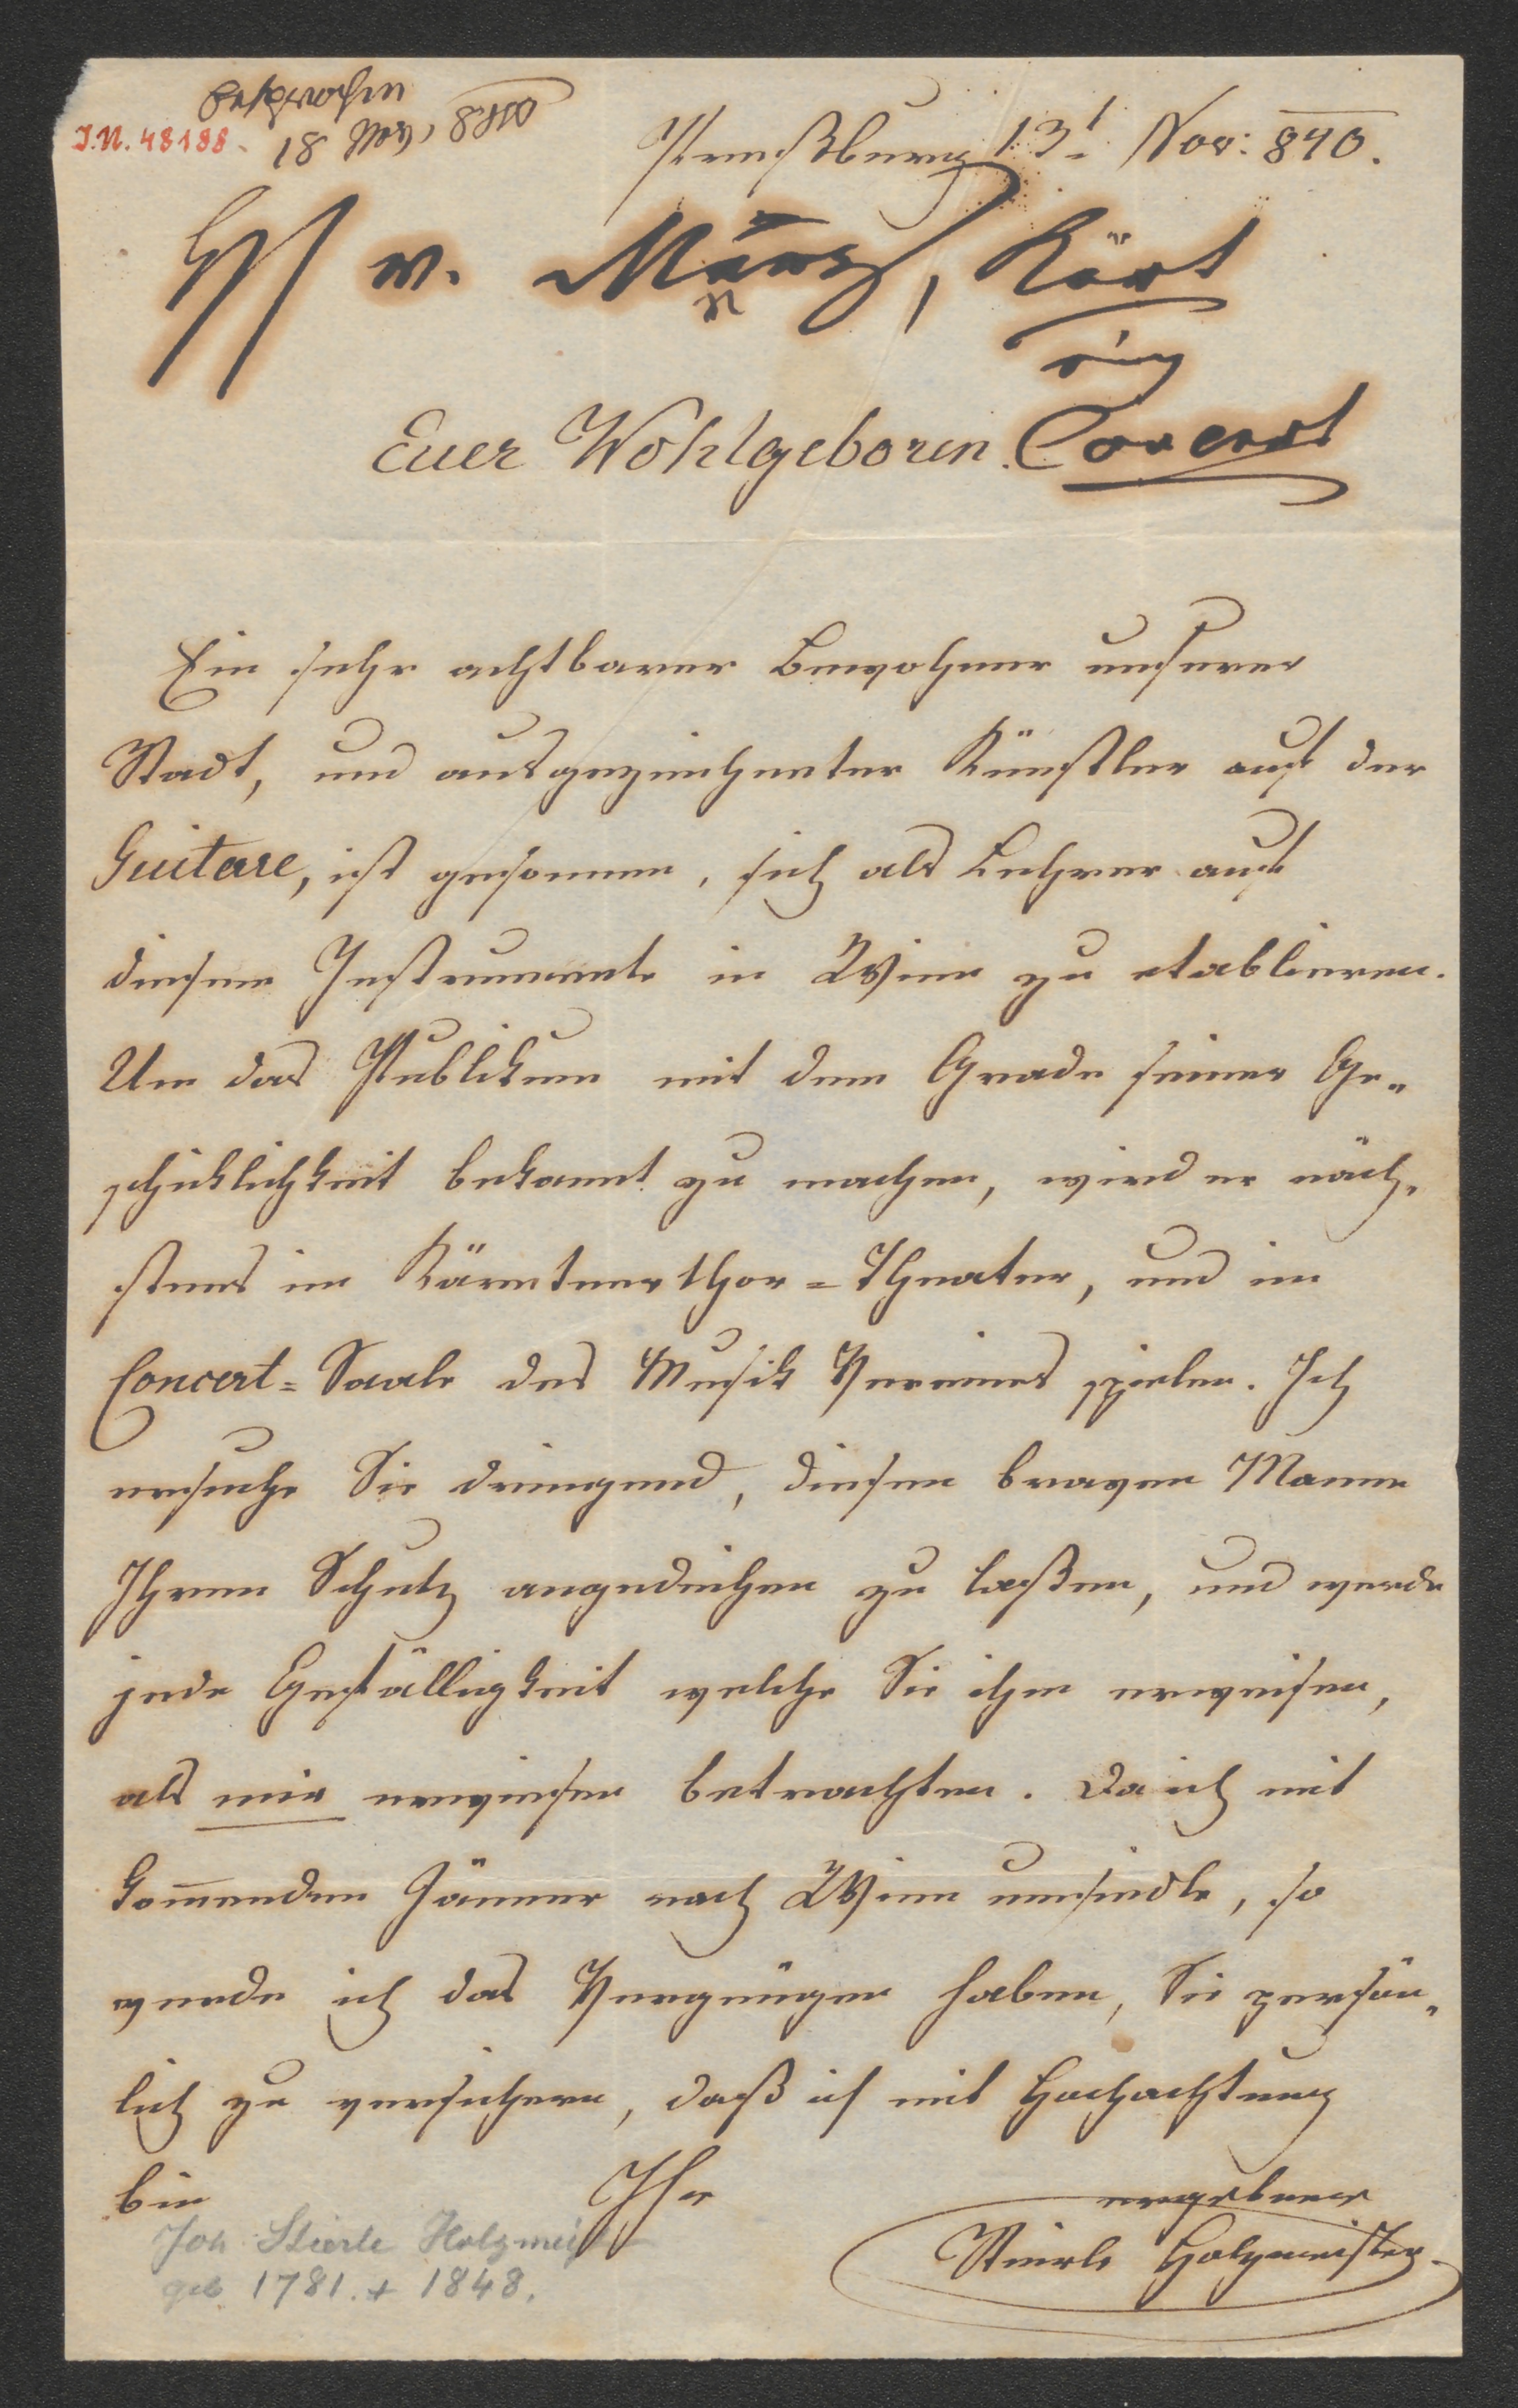 besprochen
18 Nov. 840
I.N. 48188.
Preßburg 13t Nov: 840.
H v. März,
Concert
Euer Wohlgeboren.
Ein sehr achtbarer Bewohner unserer
Stadt, und ausgezeichneter Künstler auf der
Guitare, ist gesonnen, sich als Lehrer auf
diesem Instrumente in Wien zu etablieren.
Um das Publikum mit dem Grade seiner Ge„
schiklichkeit bekannt zu machen, wird er näch„
stens im Kärntnerthor=Theater, und im
Concert=Saale des Musik Vereines spielen. Ich
ersuche Sie dringend, diesem braven Manne
Ihren Schutz angedeihen zu laßen, und werde
jede Gefälligkeit welche Sie ihm erweisen,
als mir erwiesen betrachten. Da ich mit
kom̅enden Jänner nach Wien umsiedle, so
werde ich das Vergnügen haben, Sie persön„
lich zu versichern, daß ich mit Hochachtung
bin Ihr
ergebener
Stierle Holzmeister
Joh. Stierle Holzmeist
geb 1781. + 1848.